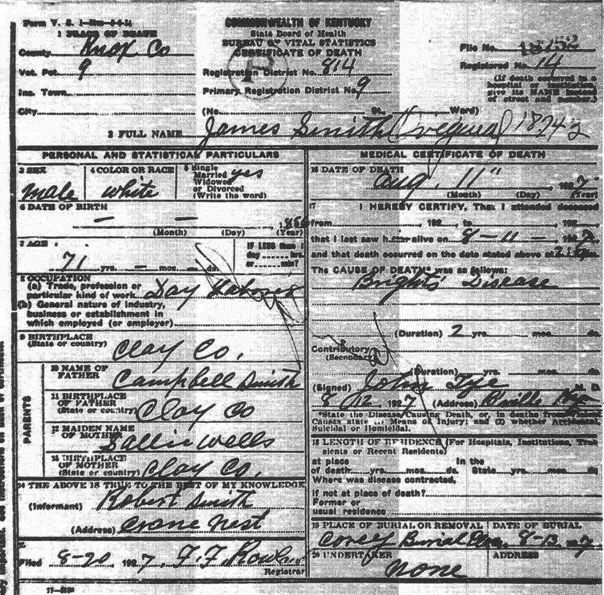 Form V. S.
COMMONWEALTH OF KENTUCKY
State Board of Health
BUREAU OF VITAL STATISTICS
CERTIFICATE OF DEATH
1 PLACE OF DEATH
County Knox Co
Vot. Pct. 9
Inc. Town
City
Registration District No. 814
Primary Registration District No. 9
(No. St. Ward)
File No. 18752
Registered No. 14
(If death occurred in a
hospital or institution
give its NAME instead
of street and number.)
2 FULL NAME James Smith 18742
PERSONAL AND STATISTICAL PARTICULARS
3 SEX
male
4 COLOR OR RACE
white
5 Single
Married yes
Widowed
or Divorced
(Write the word)
6 DATE OF BIRTH
(Month) (Day) (Year)
7 AGE
71 yrs. mos. ds.
IF LESS than 1
day hrs.
or min?
8 OCCUPATION
(a) Trade, profession or
particular kind of work Day Laborer
(b) General nature of industry,
business or establishment in
which employed (or employer)
9 BIRTHPLACE
(State or country) Clay Co.
PARENTS
10 NAME OF
FATHER Campbell Smith
11 BIRTHPLACE
OF FATHER
(State or country) Clay Co
12 MAIDEN NAME
OF MOTHER Sallie Walls
13 BIRTHPLACE
OF MOTHER
(State or country) Clay Co.
14 THE ABOVE IS TRUE TO THE BEST OF MY KNOWLEDGE
(Informant) Robert Smith
(Address) Crane Nest
Filed 8-20, 1927
Registrar
MEDICAL CERTIFICATE OF DEATH
16 DATE OF DEATH
Aug. 11" 1927
(Month) (Day) (Year)
17 I HEREBY CERTIFY, That I attended deceased
from 192 to 192
that I last saw him alive on 8-11-
and that death occurred on the date stated above at
The CAUSE OF DEATH* was as follows:
Brights Disease
(Duration) 2 yrs. mos. ds.
Contributory
(Secondary)
(Duration) yrs. mos. ds.
(Signed) John Tye M. D.
8/12 1927 (Address)
*State the Disease Causing Death, or, in deaths from Violent
Causes state (1) Means of Injury; and (2) whether Accidental,
Suicidal or Homicidal.
18 LENGTH OF RESIDENCE (For Hospitals, Institutions, Tran-
sients or Recent Residents)
at place In the
of death yrs. mos. ds. State yrs. mos. ds.
Where was disease contracted,
if not at place of death?
Former or
usual residence
19 PLACE OF BURIAL OR REMOVAL DATE OF BURIAL
Burial 8-13-27
20 UNDERTAKER ADDRESS
none